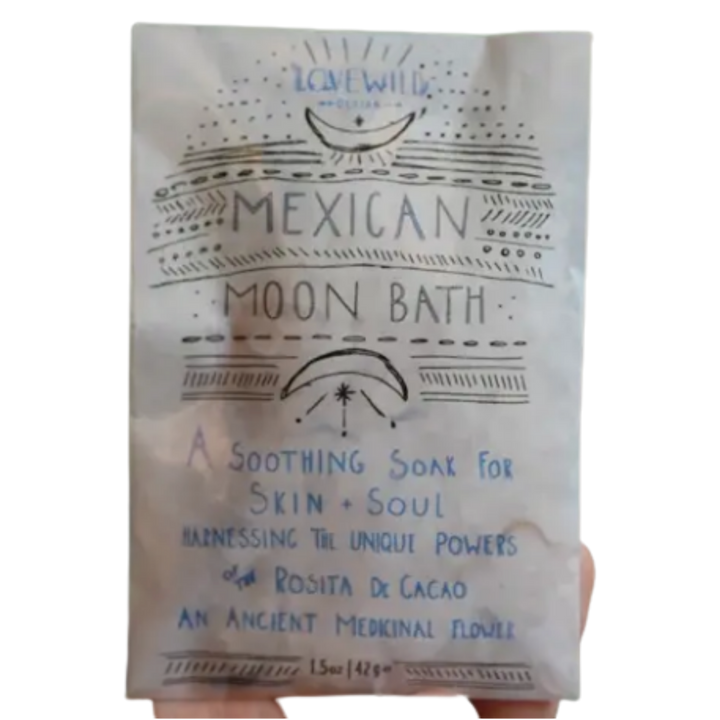 LOVEWILD
DESIGN
MEXICAN
MOON BATH
A SOOTHING SOAK FOR
SKIN + SOUL
HARNESSING THE UNIQUE POWERS
OF THE ROSITA DE CACAO
AN ANCIENT MEDICINAL FLOWER
1.5oz | 42g